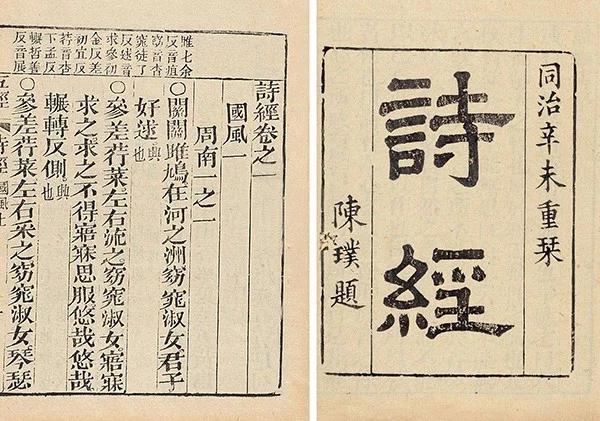 同治辛未重栞
詩經
陳璞題
雎七余
反音疽
窈音杳
窕徒了
反逑音
求參初
金反差
初宜反
荇音杏
下孟反
輾哲善
反音展
詩經卷之一
國風一
周南一之一
○關關雎鳩在河之洲窈窕淑女君子
好逑興也
○參差荇菜左右流之窈窕淑女寤寐
求之求之不得寤寐思服悠哉悠哉
輾轉反側興也
○參差荇菜左右采之窈窕淑女琴瑟
五經 詩經 國風上